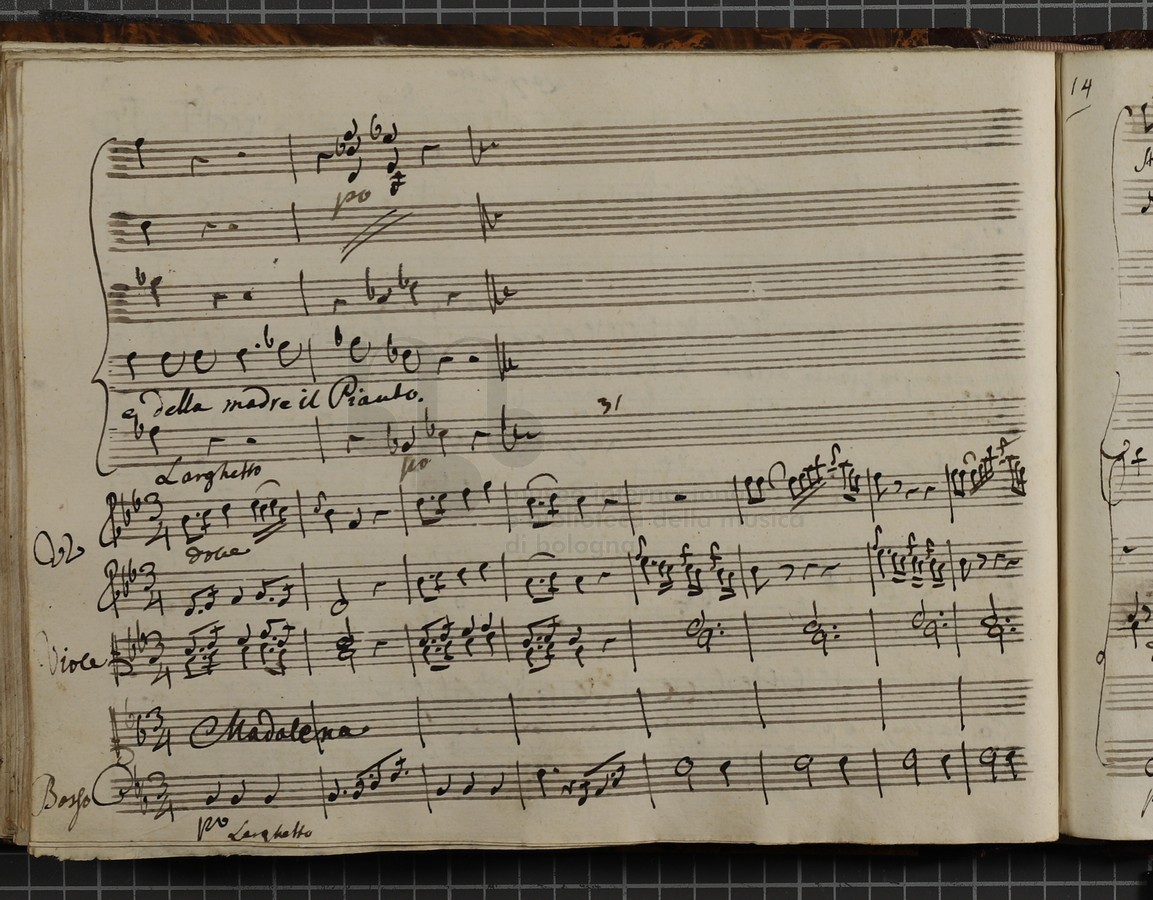 14
po
e della madre il Pianto.
31
Larghetto
po
dolce
Viole
Madalena
Basso
po Larghetto
museo internazionale
e biblioteca della musica
di bologna